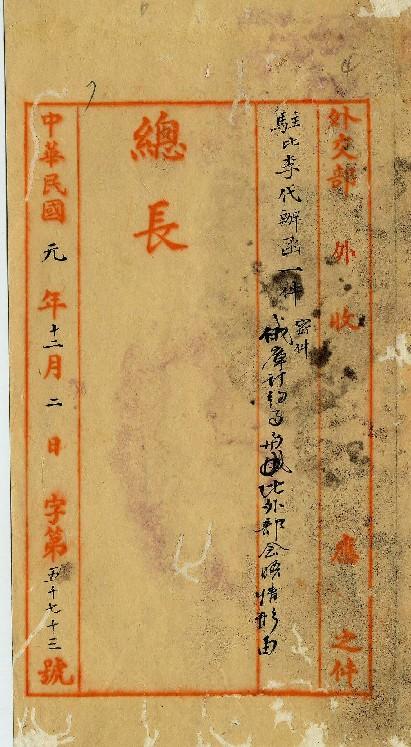 外交部 外收 應 之件
駐比李代辦函一件
密件
俄庫訂約事與比外部會晤情形由
總長
中華民國元年十二月二日 字第五千七十三號